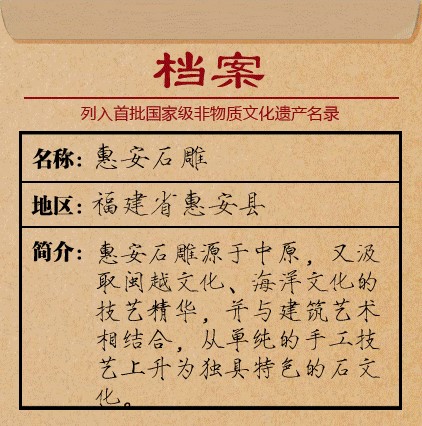 档案
列入首批国家级非物质文化遗产名录
名称：惠安石雕
地区：福建省惠安县
简介：惠安石雕源于中原，又汲
取闽越文化、海洋文化的
技艺精华，并与建筑艺术
相结合，从单纯的手工技
艺上升为独具特色的石文
化。